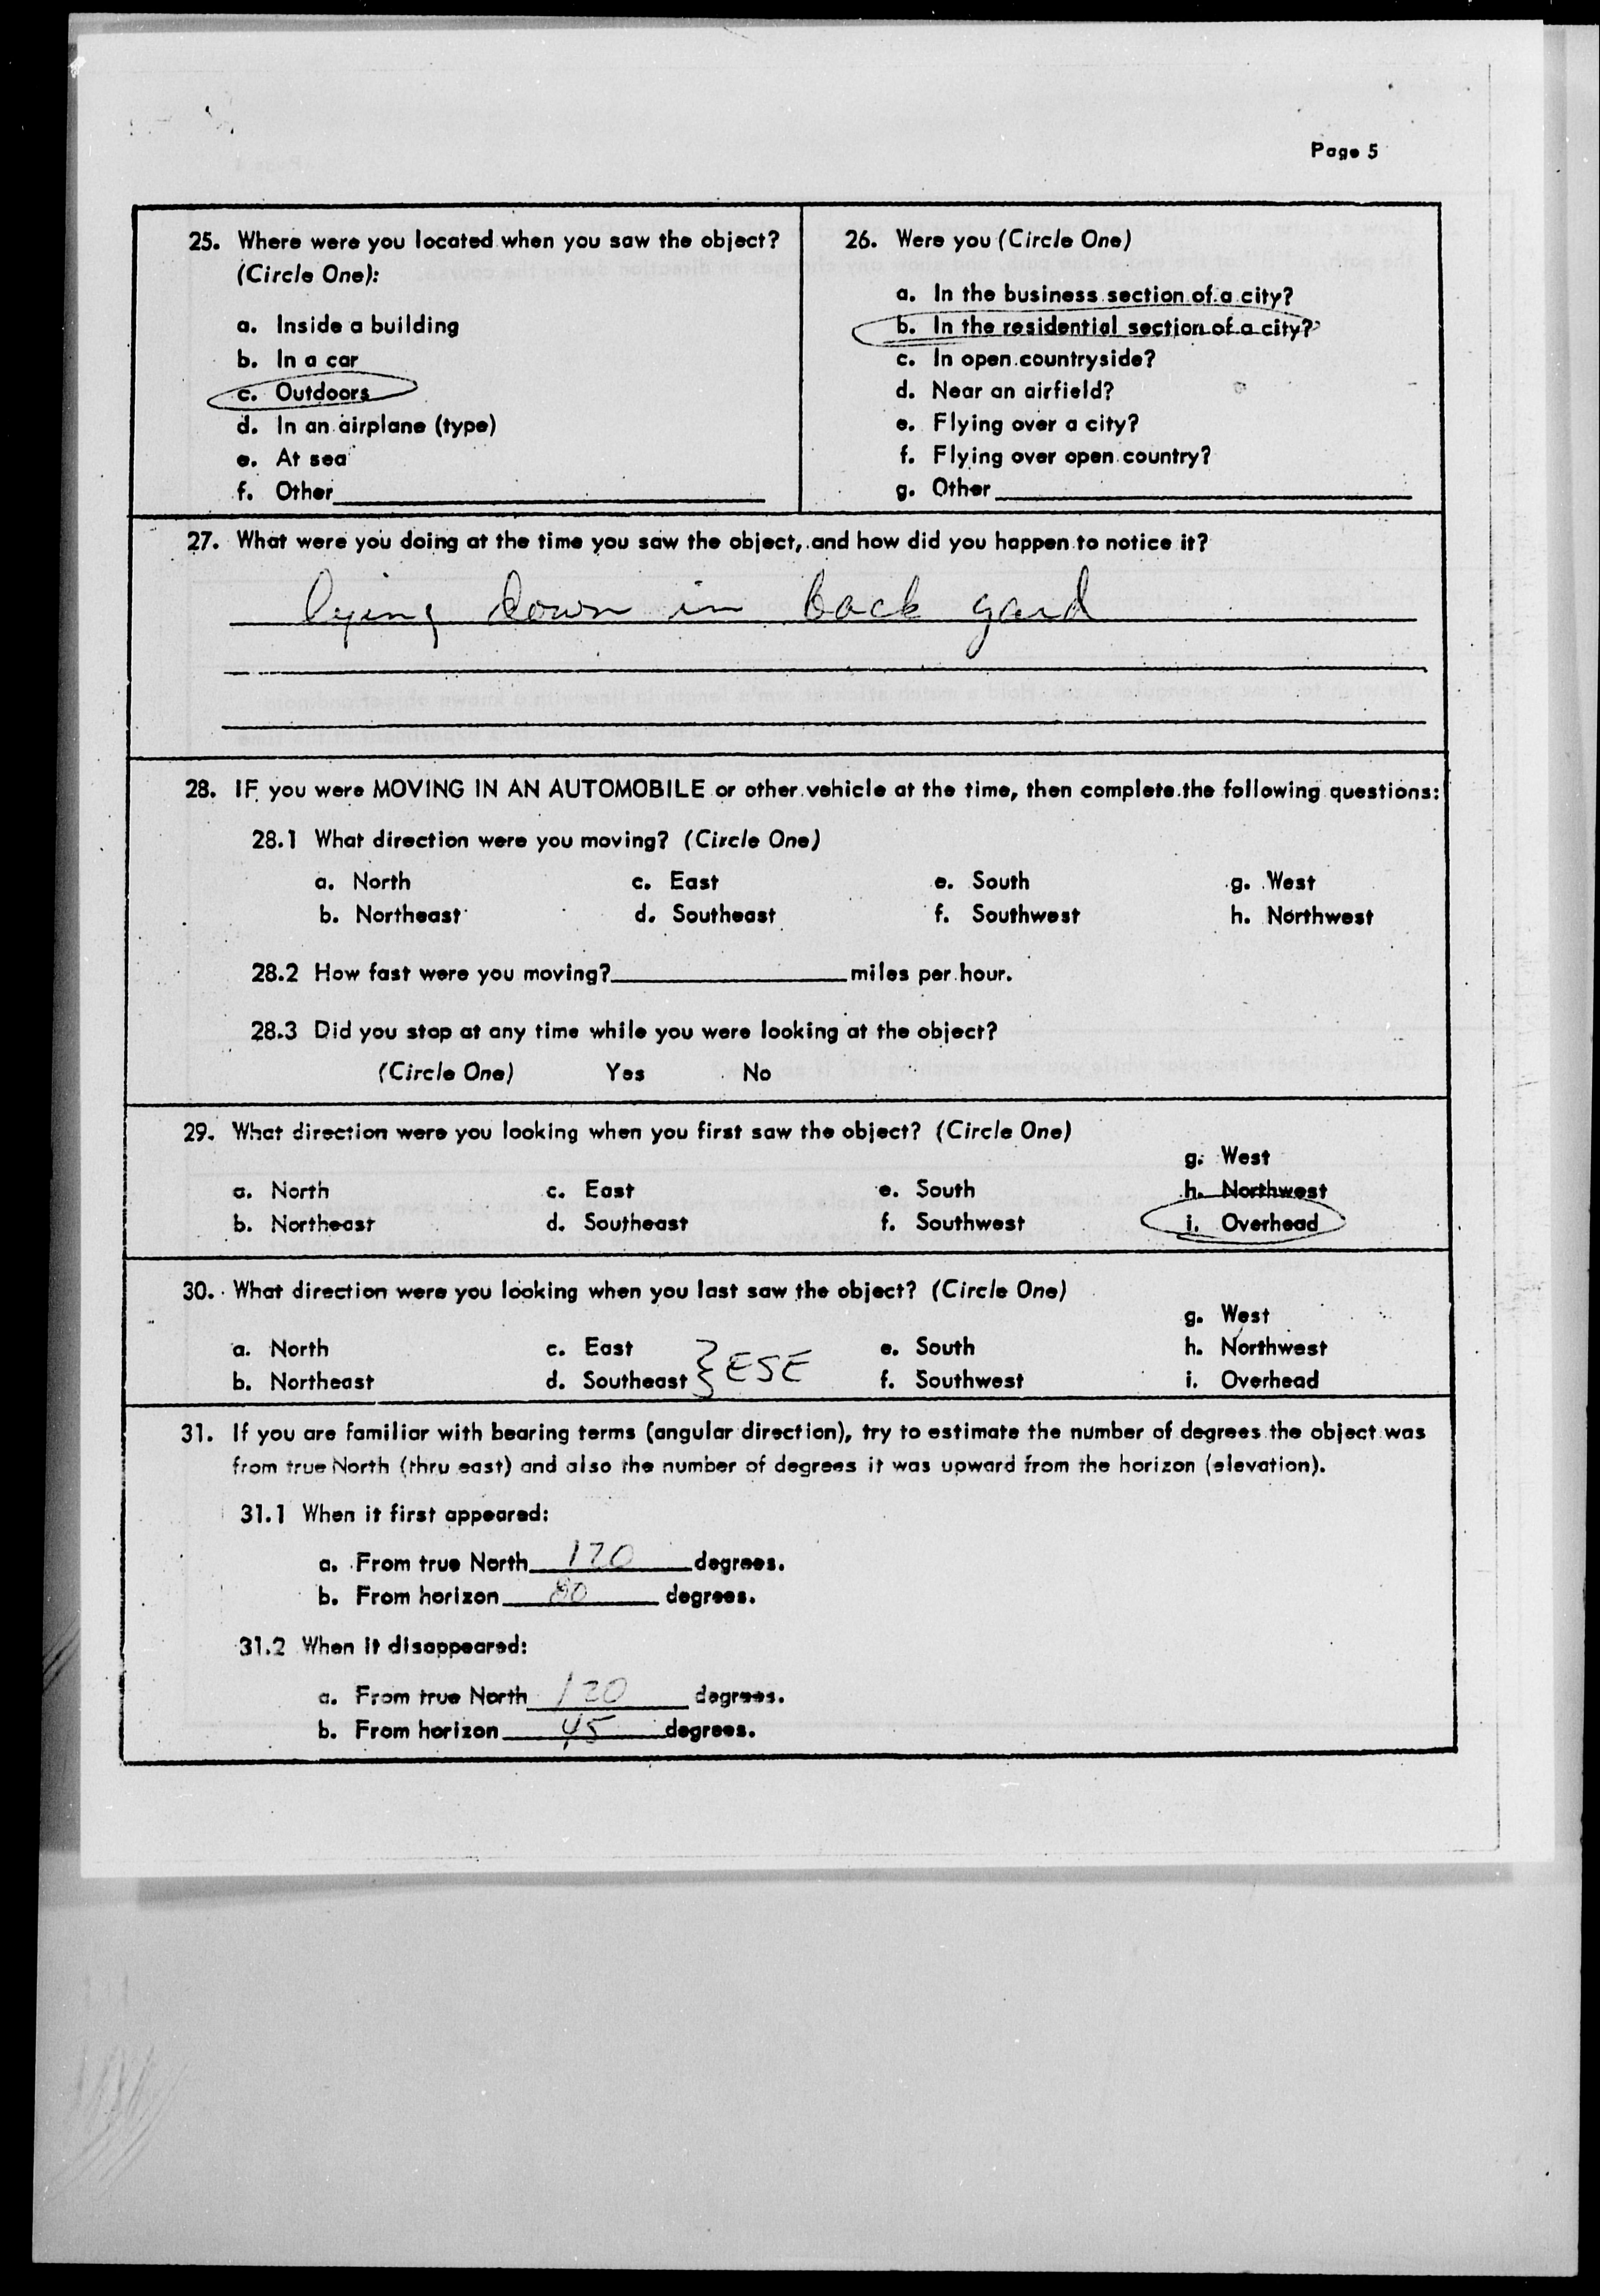 Page 5
25. Where were you located when you saw the object?
(Circle One):
a. Inside a building
b. In a car
c. Outdoors
d. In an airplane (type)
e. At sea
f. Other
26. Were you (Circle One)
a. In the business section of a city?
b. In the residential section of a city?
c. In open countryside?
d. Near an airfield?
e. Flying over a city?
f. Flying over open country?
g. Other
27. What were you doing at the time you saw the object, and how did you happen to notice it?
lying down in back yard
28. IF you were MOVING IN AN AUTOMOBILE or other vehicle at the time, then complete the following questions:
28.1 What direction were you moving? (Circle One)
a. North c. East e. South g. West
b. Northeast d. Southeast f. Southwest h. Northwest
28.2 How fast were you moving? miles per hour.
28.3 Did you stop at any time while you were looking at the object?
(Circle One) Yes No
29. What direction were you looking when you first saw the object? (Circle One)
g. West
a. North c. East e. South h. Northwest
b. Northeast d. Southeast f. Southwest i. Overhead
30. What direction were you looking when you last saw the object? (Circle One)
g. West
a. North c. East e. South h. Northwest
ESE
b. Northeast d. Southeast f. Southwest i. Overhead
31. If you are familiar with bearing terms (angular direction), try to estimate the number of degrees the object was
from true North (thru east) and also the number of degrees it was upward from the horizon (elevation).
31.1 When it first appeared:
a. From true North degrees.
b. From horizon 80 degrees.
31.2 When it disappeared:
a. From true North 120 degrees.
b. From horizon 45 degrees.